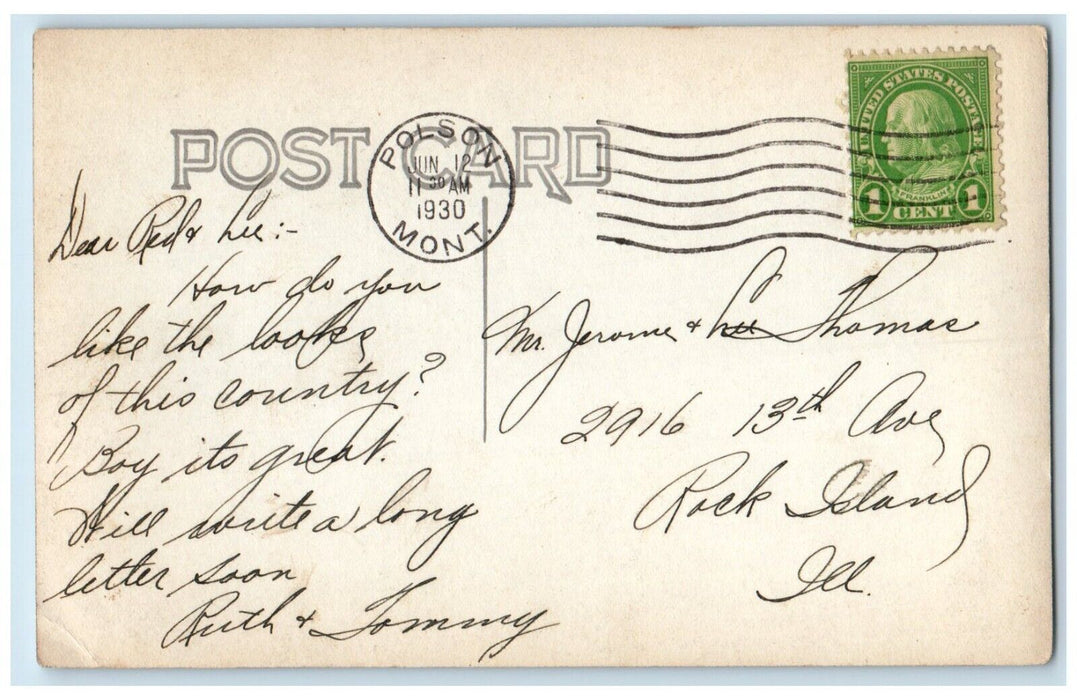 POST CARD
POLSON
JUN 12
11 30 AM
1930
MONT.
UNITED STATES POSTAGE
FRANKLIN
1 CENT 1
Dear Red & Lee:-
How do you
like the looks
of this country?
Boy its great.
Will write a long
letter soon
Ruth & Tommy
Mr. Jerome & Lee Thomas
2916 13th Ave
Rock Island
Ill.